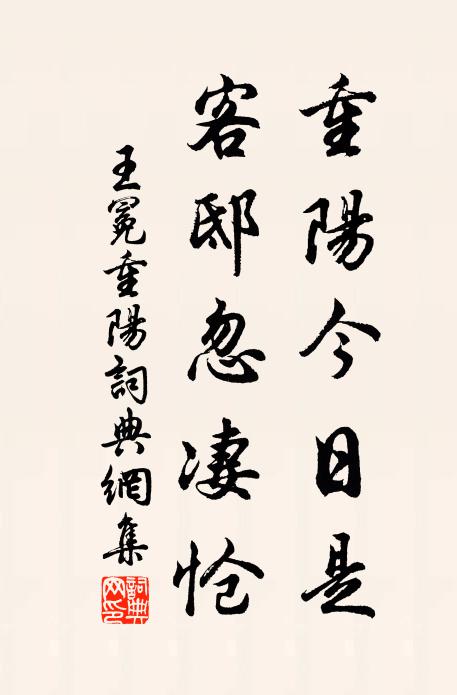 重陽今日是
客邸忽凄愴
王冕重陽詞典網集
詞典网印